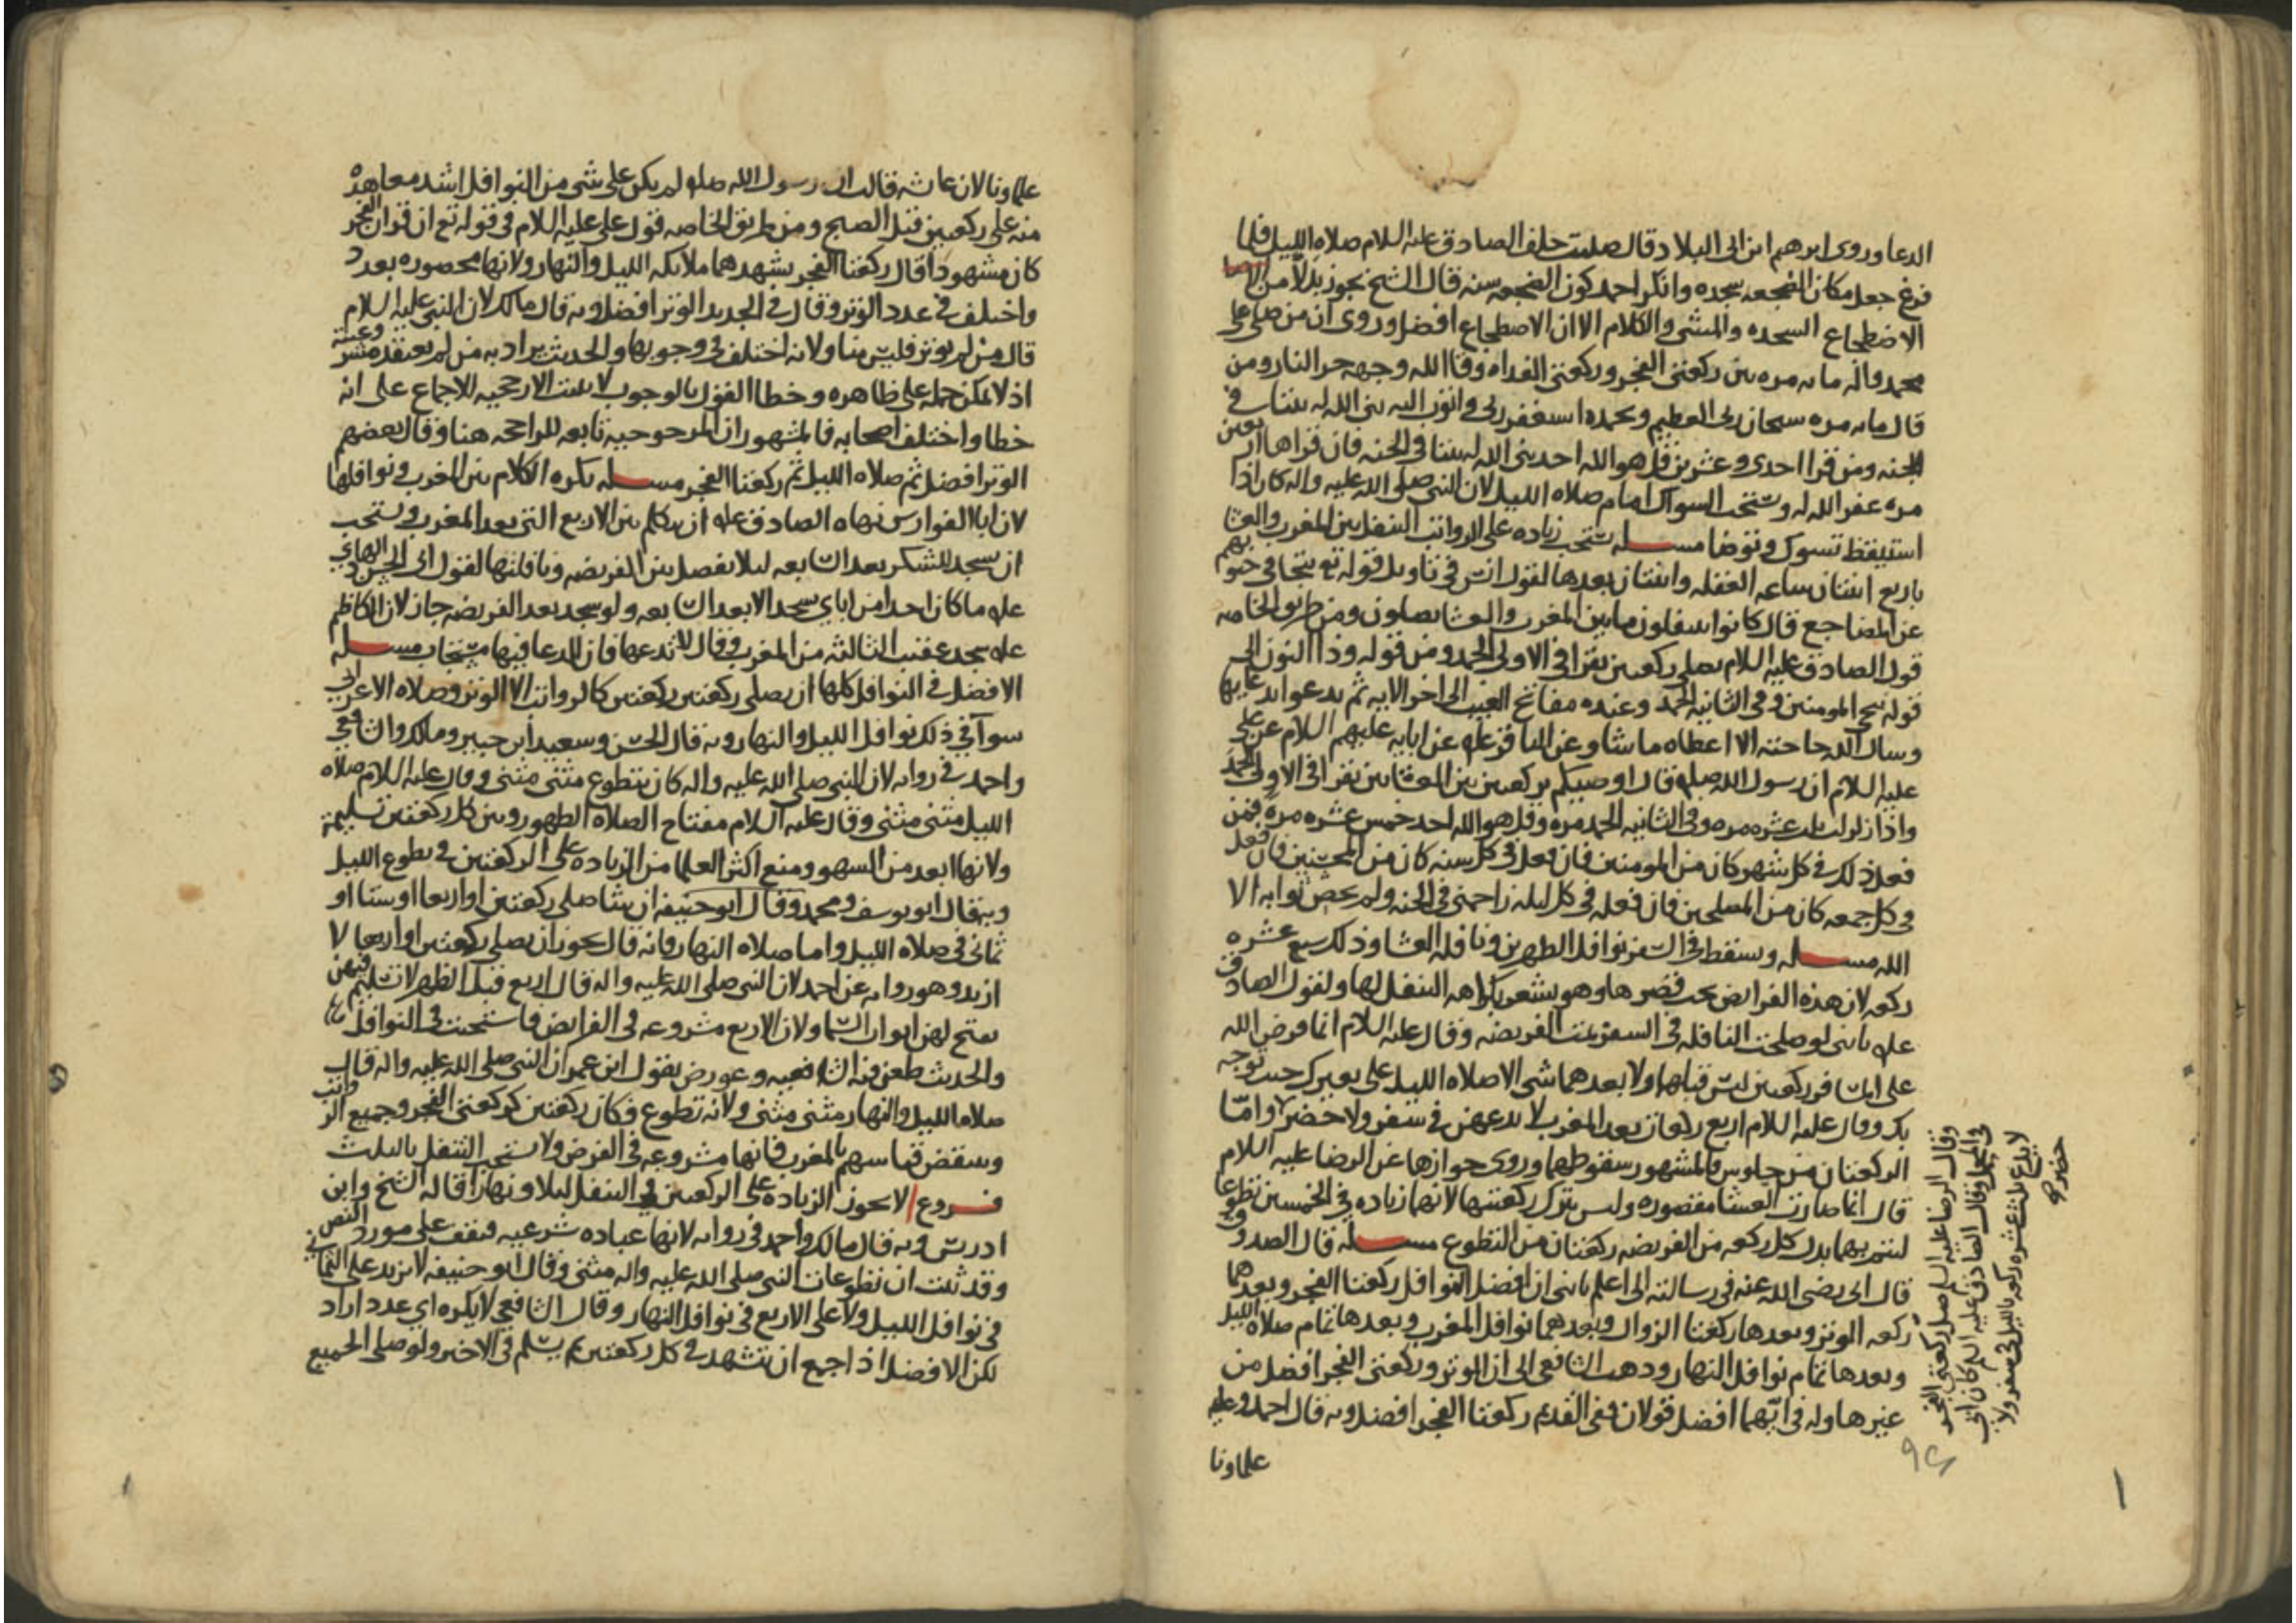 الدعا وروى ابرهيم ابن ابى البلاد قال صليت خلف الصادق عليه السلام صلاه الليل فلما
فرغ جعل مكان الضجعه سجده وانكر احمد كون الضجعه سنه قال الشيخ يجوز بدلا من
الاضطجاع السجده والمشى والكلام الا ان الاضطجاع افضل وروى ان من صلى على
محمد واله مايه مره بين ركعتى الفجر وركعتى الغداه وقا الله وجهه حر النار ومن
قال مايه مره سبحان ربى العظيم وبحمده استغفر ربى واتوب اليه بنى الله له بيتا فى
الجنه ومن قرا احدى وعشرين قل هو الله احد بنى الله له بيتا فى الجنه فان قراها اربعين
مره غفر الله له ويستحب السواك امام صلاه الليل لان النبى صلى الله عليه واله كان اذا
استيقظ تسوك وتوضا مسله يستحب زياده على الرواتب التنفل بين المغرب والعشا
باربع اثنتان ساعه الغفله واثنتان بعدها لقول انس فى تاويل قوله تع تتجافى جنوبهم
عن المضاجع قال كانوا يتنفلون ما بين المغرب والعشا يصلون ومن طريق الخاصه
قول الصادق عليه السلام يصلى ركعتين يقرا فى الاولى الحمد ومن قوله وذا النون الى
قوله ننجى المومنين وفى الثانيه الحمد وعنده مفاتح الغيب الى اخر الايه ثم يدعوا بدعايها
وسال الله حاجته الا اعطاه ما شا وعن الباقر عله عن ابايه عليهم السلام عن على
عليه السلام ان رسول الله صله قال اوصيكم بركعتين بين العشاين يقرا فى الاولى الحمد
واذا زلزلت ثلث عشره مره وفى الثانيه الحمد مره وقل هو الله احد خمس عشره مره فمن
فعل ذلك فى كل شهر كان من المومنين فان فعل فى كل سنه كان من المحسنين فان فعل
فى كل جمعه كان من المصلين فان فعله فى كل ليله زاحمنى فى الجنه ولم يحص ثوابه الا
الله مسله ويسقط فى السفر نوافل الظهرين ونافله العشا وذلك سبع عشره
ركعه لان هذه الفرايض يجب قصرها وهو يشعر بكراهه التنفل لها ولقول الصادق
عله يا بنى لو صلحت النافله فى السفر تمت الفريضه وقال عليه السلام انما فرض الله
على المسافر ركعتين ليس قبلهما ولا بعدهما شى الا صلاه الليل على بعيرك حيث توجه
بك وقال عليه السلام اربع ركعات بعد المغرب لا تدعهن فى سفر ولا حضر واما
الركعتان من جلوس فالمشهور سقوطهما وروى جوازها عن الرضا عليه السلام
قال انما صارت العشا مقصوره وليس تترك ركعتيها لانها زياده فى الخمسين تطوعا
ليتم بهما بدل كل ركعه من الفريضه ركعتان من التطوع مسله قال الصدوق
قال ابى رضى الله عنه فى رسالته الى اعلم يا بنى ان افضل النوافل ركعتا الفجر وبعدهما
ركعه الوتر وبعدها ركعتا الزوال وبعدهما نوافل المغرب وبعدها تمام صلاه الليل
وبعدها تمام نوافل النهار وذهب الشافعى الى ان الوتر وركعتى الفجر افضل من
غيرها وله فى ايهما افضل قولان ففى القديم ركعتا الفجر افضل وبه قال احمد وعليه
علماونا
وقال الرضا عليه السلم صل ركعتى الفجر
فى المحمل وقال الصادق عليه السلم كان ابى
لا يدع ثلث عشره ركعه بالليل فى سفر ولا
حضر صح
٩٤
علماونا لان عايشه قالت ان رسول الله صله لم يكن على شى من النوافل اشد معاهده
منه على ركعتين قبل الصبح ومن طريق الخاصه قول على عليه السلام فى قوله تع ان قران الفجر
كان مشهودا قال ركعتا الفجر يشهدهما ملائكه الليل والنهار ولانها محصوره بعدد
واختلف فى عدد الوتر وقال فى الجديد الوتر افضل وبه قال مالك لان النبى عليه السلام
قال من لم يوتر فليس منا ولانه اختلف فى وجوبها والحديث يراد به من لم يعتقد مشروعيته
اذ لا يمكن حمله على ظاهره وخطا القول بالوجوب لا يثبت الارجحيه للاجماع على انه
خطا واختلف اصحابه فالمشهور ان المرجوحيه تابعه للراجحه هنا وقال بعضهم
الوتر افضل ثم صلاه الليل ثم ركعتا الفجر مسله يكره الكلام بين المغرب ونوافلها
لان ابا الفوارس نهاه الصادق عله ان يتكلم بين الاربع التى بعد المغرب ويستحب
ان يسجد للشكر بعد السابعه ليلا يفصل بين الفريضه ونافلتها لقول ابى الحسن الهادى
عله ما كان احد من اباي يسجد الا بعد السابعه ولو سجد بعد الفريضه جاز لان الكاظم
عله سجد عقيب الثالثه من المغرب وقال لا تدعها فان الدعا فيها مستجاب مسله
الافضل فى النوافل كلها ان يصلى ركعتين ركعتين كالرواتب الا الوتر وصلاه الاعرابى
سوا فى ذلك نوافل الليل والنهار وبه قال الحسن وسعيد ابن جبير ومالك والشافعى
واحمد فى روايه لان النبى صلى الله عليه واله كان يتطوع مثنى مثنى وقال عليه السلام صلاه
الليل مثنى مثنى وقال عليه السلام مفتاح الصلاه الطهور وبين كل ركعتين تسليمة
ولانها ابعد من السهو ومنع اكثر العلما من الزياده على الركعتين فى تطوع الليل
وبه قال ابو يوسف ومحمد وقال ابو حنيفه ان شا صلى ركعتين او اربعا او ستا او
ثمانى فى صلاه الليل واما صلاه النهار فانه قال يجوز ان يصلى ركعتين او اربعا لا
ازيد وهو روايه عن احمد لان النبى صلى الله عليه واله قال اربع قبل الظهر لا تسليم فيهن
يفتح لهن ابواب السما ولان الاربع مشروعه فى الفرايض فاستحبت فى النوافل
والحديث طعن فيه الشافعيه وعورض بقول ابن عمر ان النبى صلى الله عليه واله قال
صلاه الليل والنهار مثنى مثنى ولانه تطوع فكان ركعتين كركعتى الفجر وجميع الرواتب
وينتقض قياسهم بالمغرب فانها مشروعه فى الفرض ولا يستحب التنفل بالثلث
فروع ا لا يجوز الزياده على الركعتين فى التنفل ليلا ونهارا قاله الشيخ وابن
ادريس وبه قال مالك واحمد فى روايه لانها عباده شرعيه فتقف على مورد النص
وقد ثبت ان تطوعات النبى صلى الله عليه واله مثنى وقال ابو حنيفه لا يزيد على الثمانى
فى نوافل الليل ولا على الاربع فى نوافل النهار وقال الشافعى لا يكره اي عدد اراد
لكن الافضل اذا جمع ان يتشهد فى كل ركعتين ثم يسلم فى الاخير ولو صلى الجميع